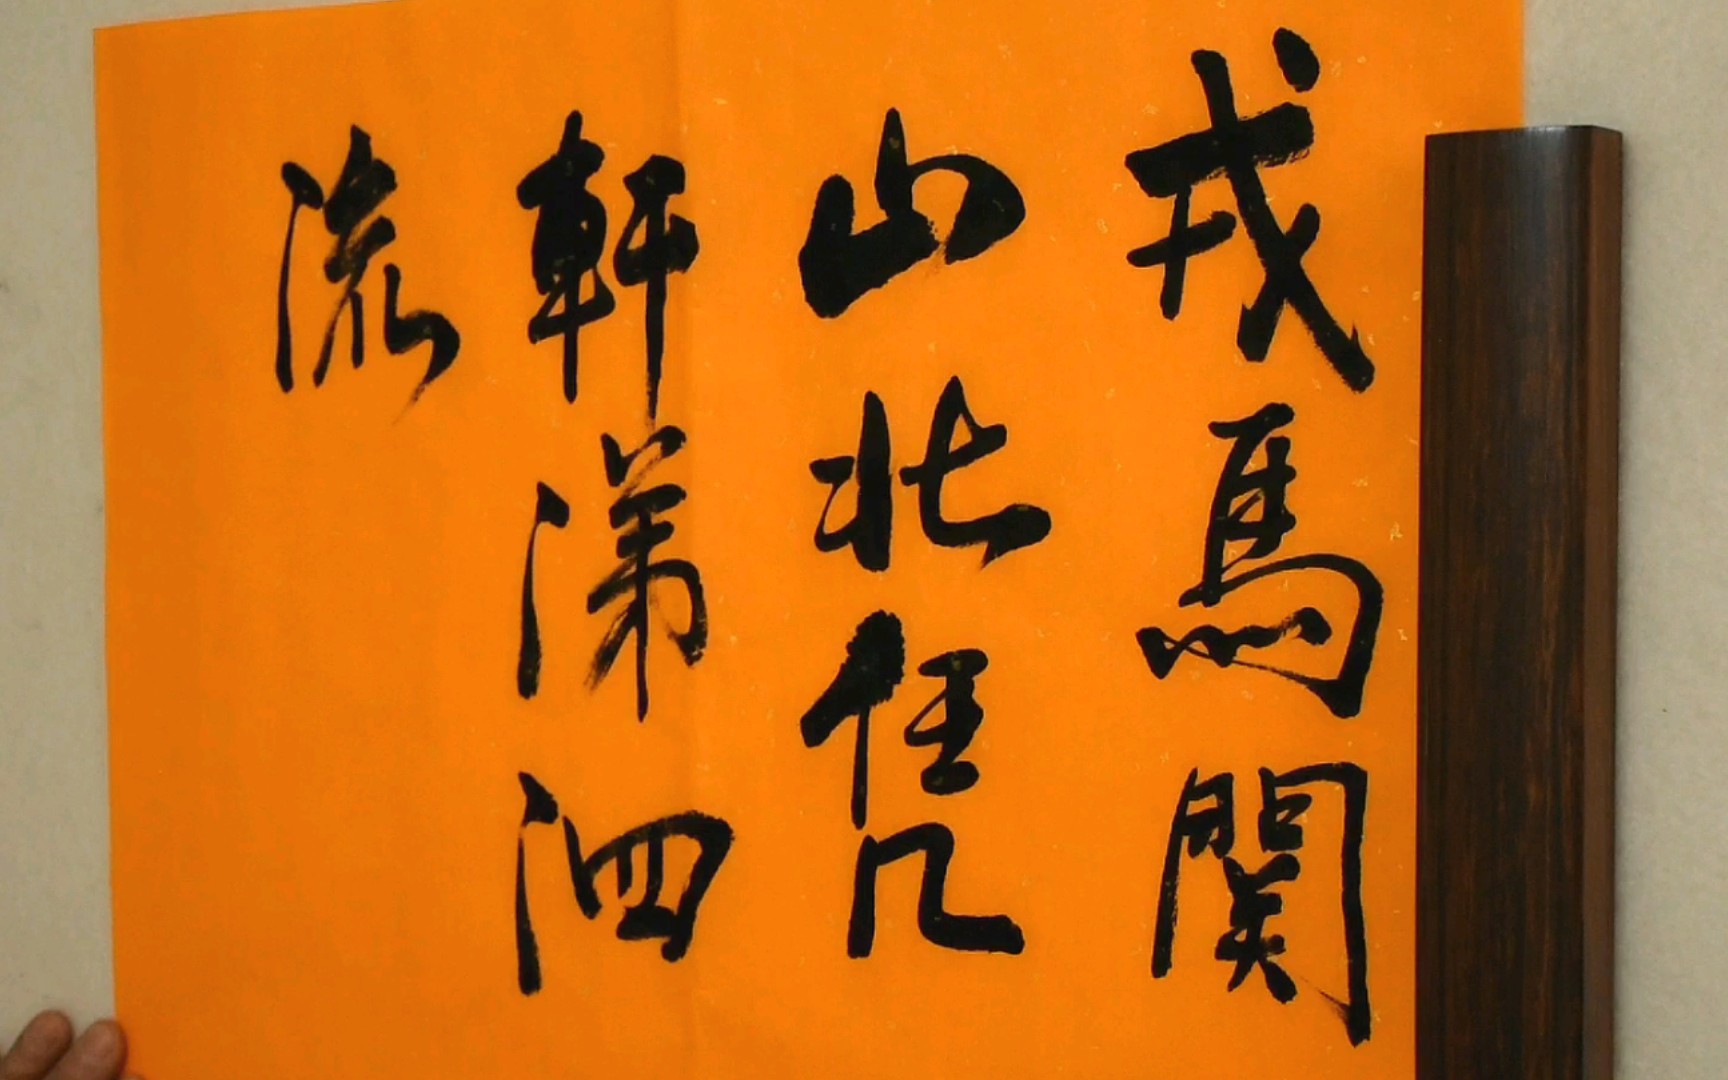 戎馬関
山北凭
軒涕泗
流